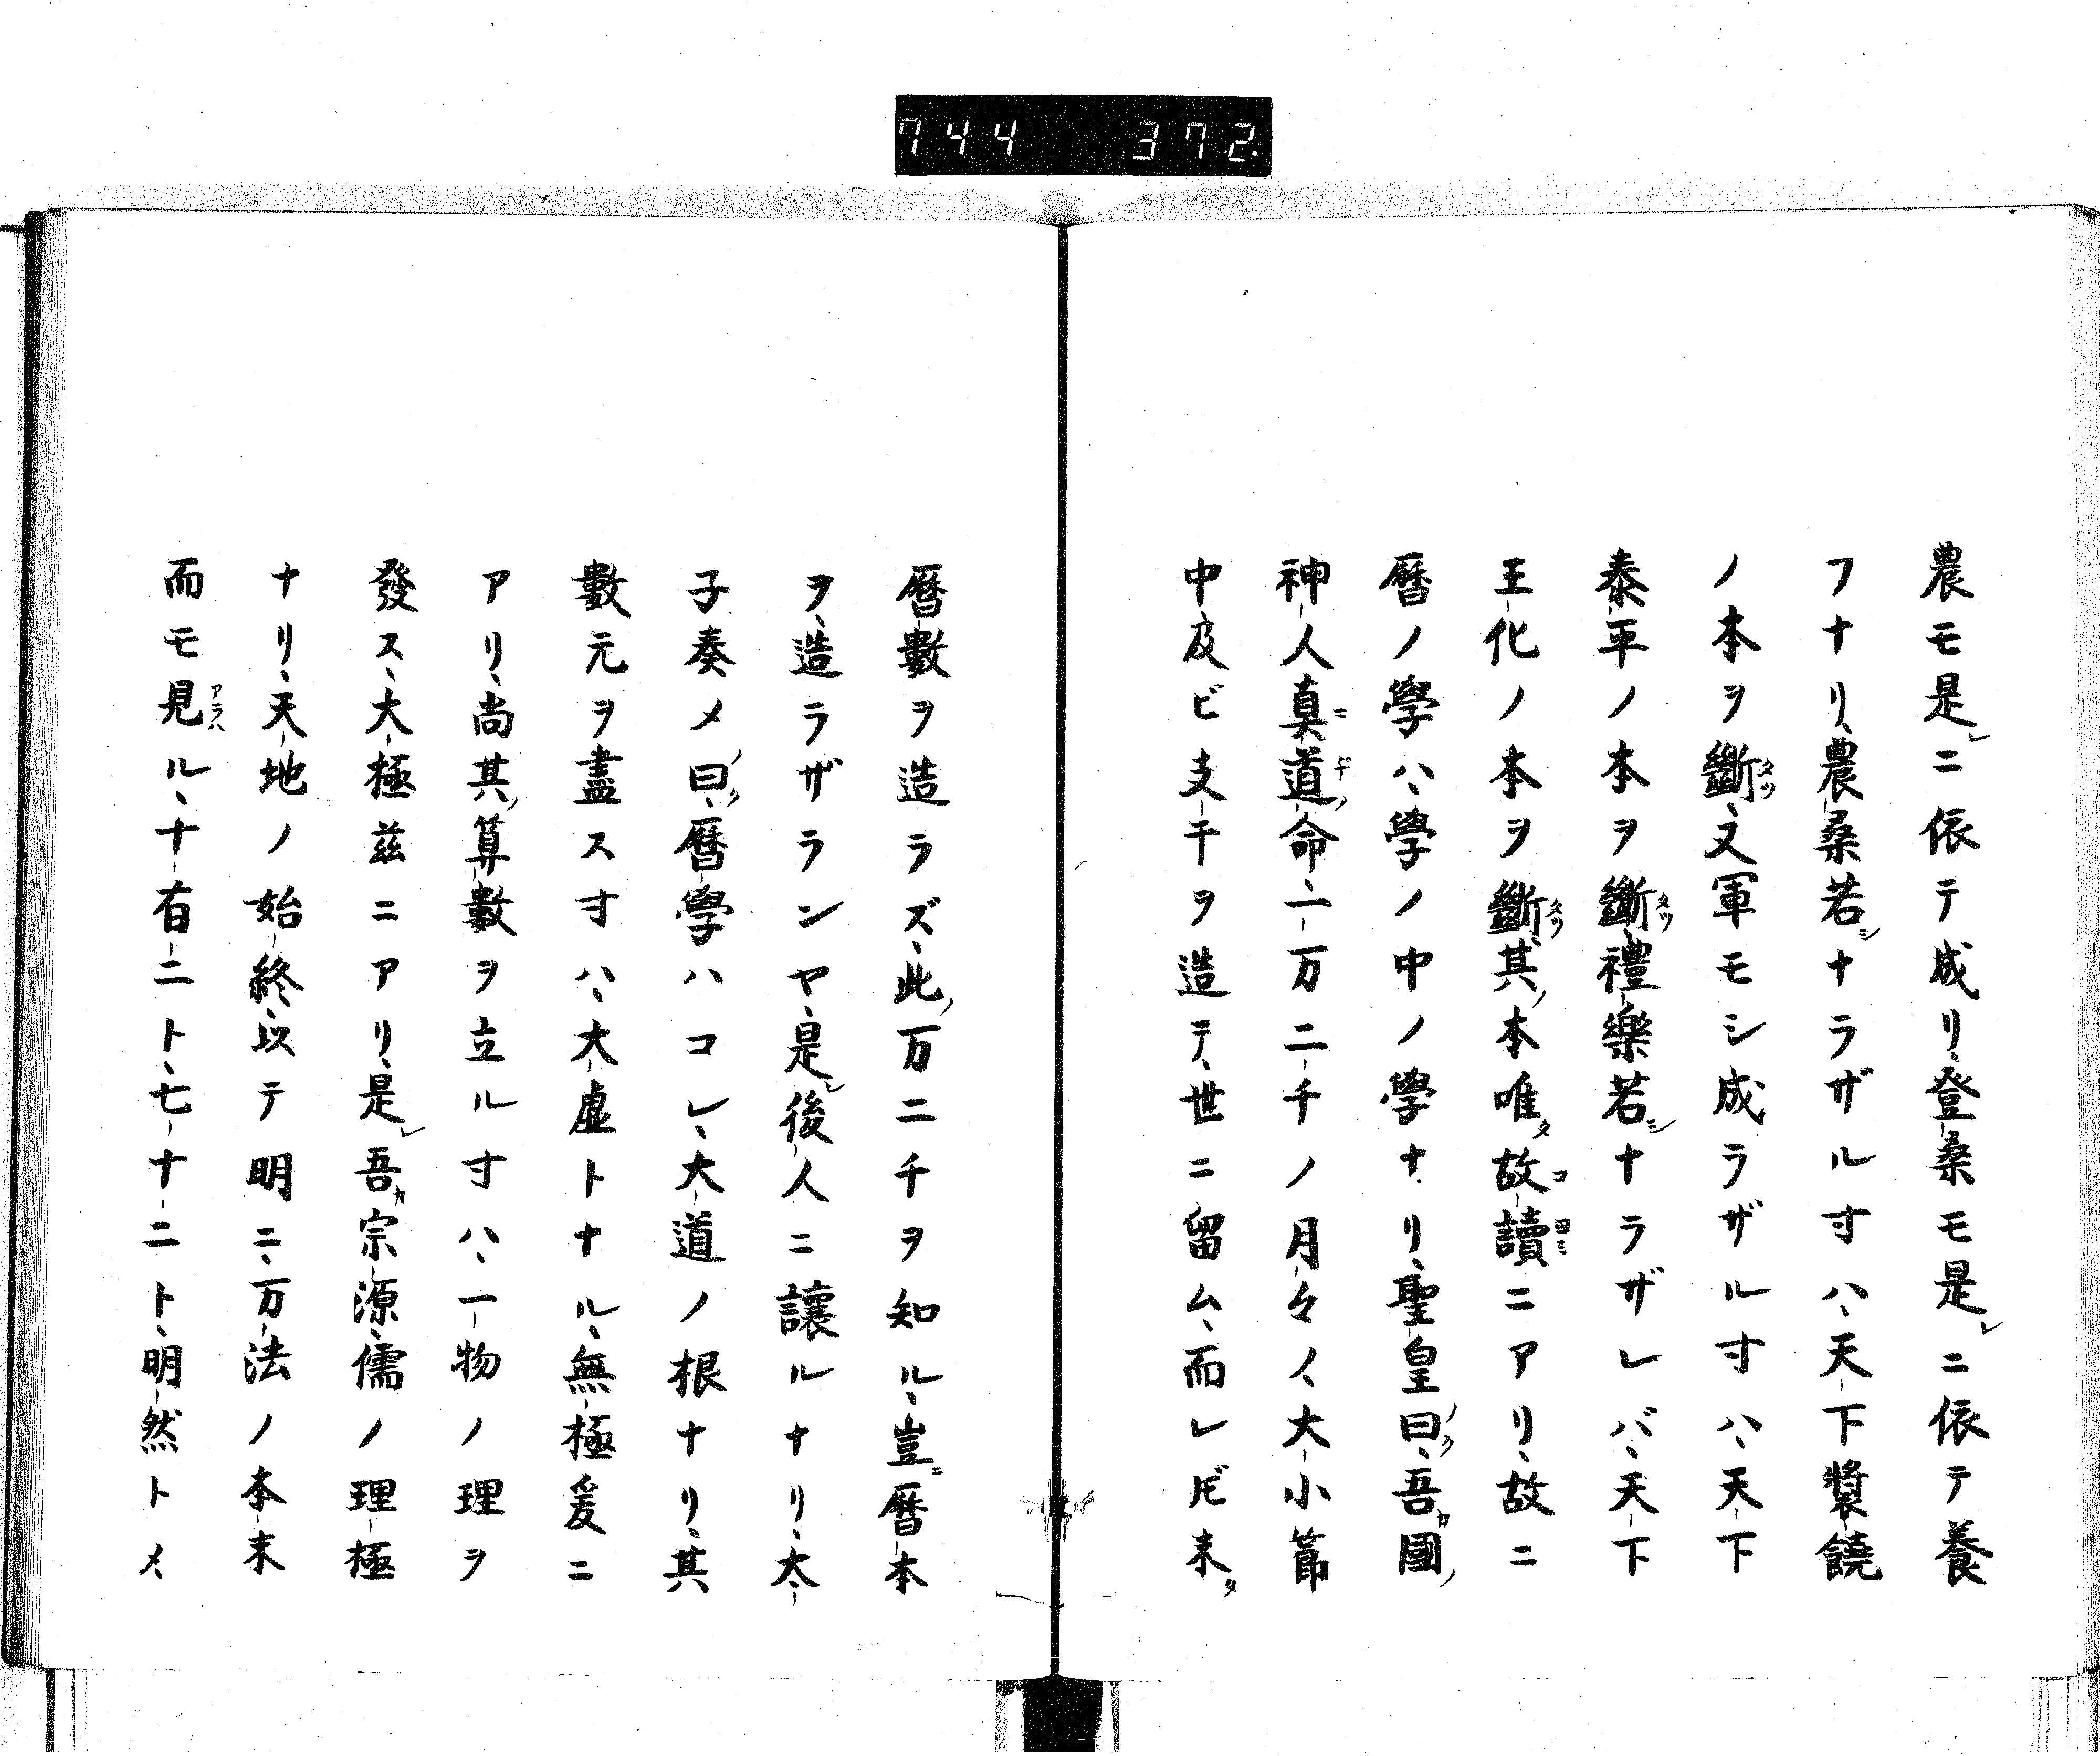 744 372.
農モ是レニ依テ成リ、登桑モ是レニ依テ養
フナリ、農桑若シナラザル寸ハ、天下漿饒
ノ本ヲ斷、又軍モシ成ラザル寸ハ、天下
泰平ノ本ヲ斷、禮樂若シナラザレバ、天下
王化ノ本ヲ斷、其ノ本唯タ故讀ニアリ、故ニ
暦ノ學ハ、學ノ中ノ學ナリ、聖皇曰ク、吾カ國ノ
神人真道ノ命、一万二千ノ月々ノ、大小節
中及ビ支干ヲ造テ、世ニ留ム、而レ𪜈未タ
暦數ヲ造ラズ、此ノ万二千ヲ知ル、豈ニ暦本
ヲ造ラザランヤ、是レ後人ニ讓ルナリ、太
子奏メ曰ク、暦學ハコレ、大道ノ根ナリ、其
數元ヲ盡ス寸ハ、大虛トナル、無極爰ニ
アリ、尚其ノ算數ヲ立ル寸ハ、一物ノ理ヲ
發ス、大極茲ニアリ、是レ吾カ宗源、儒ノ理極
ナリ、天地ノ始終、以テ明ニ、万法ノ本末
而モ見ル、十有二ト、七十二ト、明然トメ、